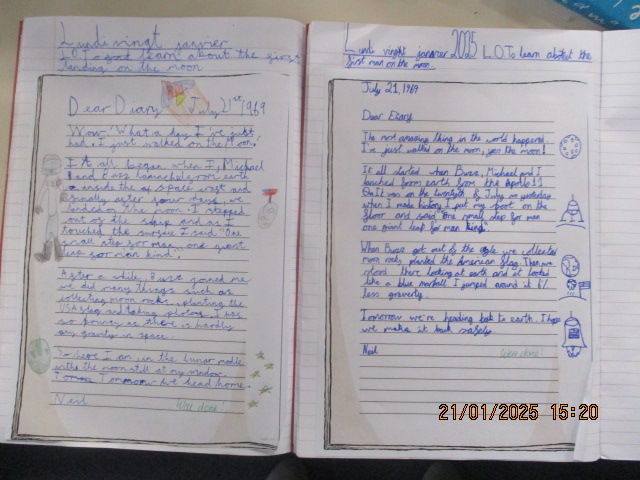 Lundi vingt janvier
LO To learn about the first
landing on the moon
Dear Diary July 21st, 1969
Wow! What a day I've just
had. I just walked on the moon.
It all began when I, Michael
and Buzz launched from earth
inside the of space
finally after four days, we
landed on the moon. I stepped
out of the ship and as I
touched the surface I said "One
small step for man, one giant
leap for man kind".
After a while, Buzz joined me
we did many things such as
collecting moon rocks, planting the
USA flag and taking photos. I was
so as there is hardly
any gravity in space.
So here I am, in the lunar
with the moon still at my window.
Tomorrow we head home.
Neil
Well done
Lundi vingt janvier 2025 L.O. To learn about the
first man on the moon.
July 21, 1969
Dear Diary
The most amazing thing in the world happened.
I've just walked on the moon, yes the moon!
It all started when Buzz, Michael and I
launched from earth from the Apollo 11
It was on the twentyth of July so yesterday
when I made history I put my foot on the
floor and said "One small step for man
one giant leap for man kind."
When Buzz got out of the we collected
moon rocks, planted the American flag. Then we
stood there looking at earth and it looked
like a blue marball. I jumped around it
less graverty.
Tomorrow we're heading bak to earth. I hope
we make it back safely.
Neil
Well done
21/01/2025 15:20